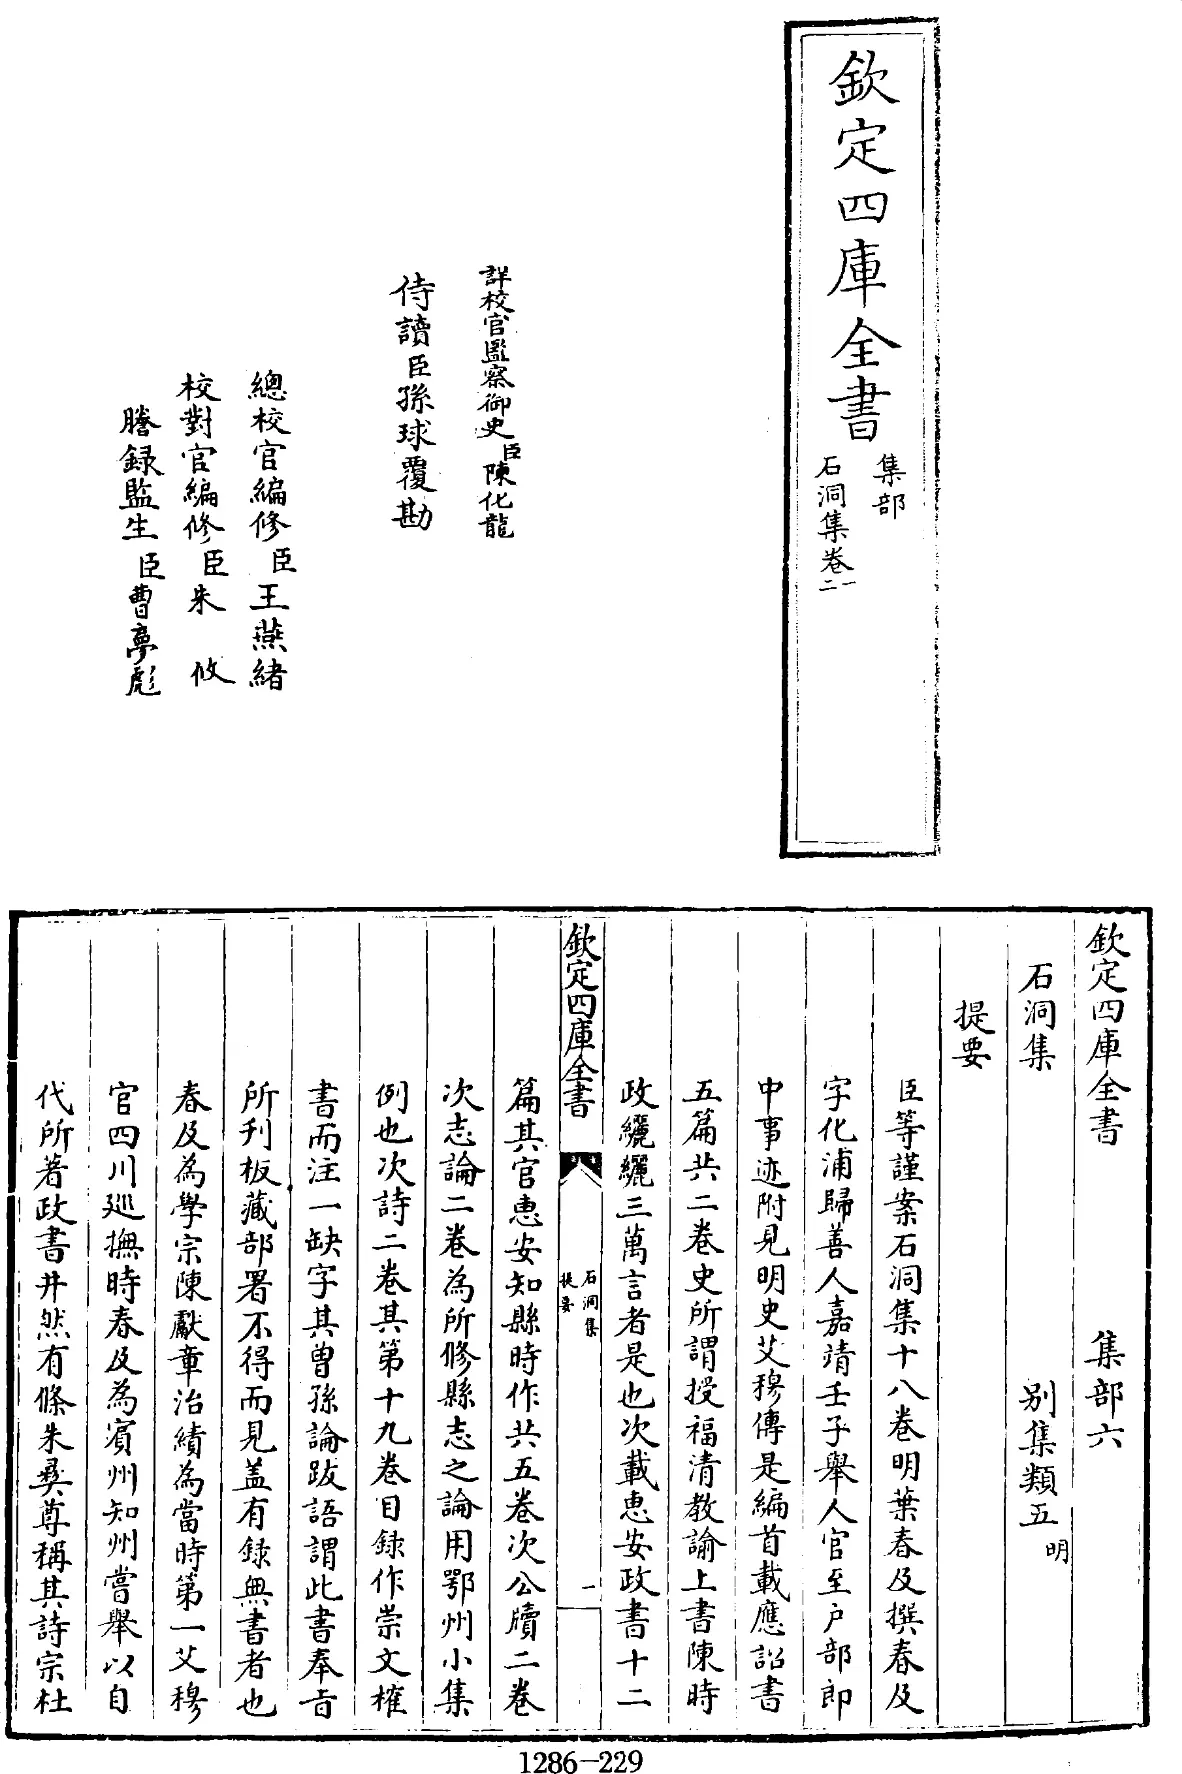 欽定四庫全書
集部
石洞集卷一
二
詳校官監察御史臣陳化龍
侍讀臣孫球覆勘
總校官編修臣王燕緒
校對官編修臣朱攸
謄録監生臣曹夢彪
欽定四庫全書 集部六
石洞集 别集類五明
提要
臣等謹案石洞集十八卷明葉春及撰春及
字化浦歸善人嘉靖壬子舉人官至户部郎
中事迹附見明史艾穆傳是編首載應詔書
五篇共二卷史所謂授福清教諭上書陳時
政纚纚三萬言者是也次載恵安政書十二
欽定四庫全書
石洞集
提要
一
篇其官恵安知縣時作共五卷次公牘二卷
次志論二卷為所修縣志之論用鄂州小集
例也次詩二卷其第十九卷目録作崇文榷
書而注一缺字其曾孫論跋語謂此書奉旨
所刋板藏部署不得而見盖有録無書者也
春及為學宗陳獻章治績為當時第一艾穆
官四川廵撫時春及為賓州知州嘗舉以自
代所著政書井然有條朱彛尊稱其詩宗杜
1286-229